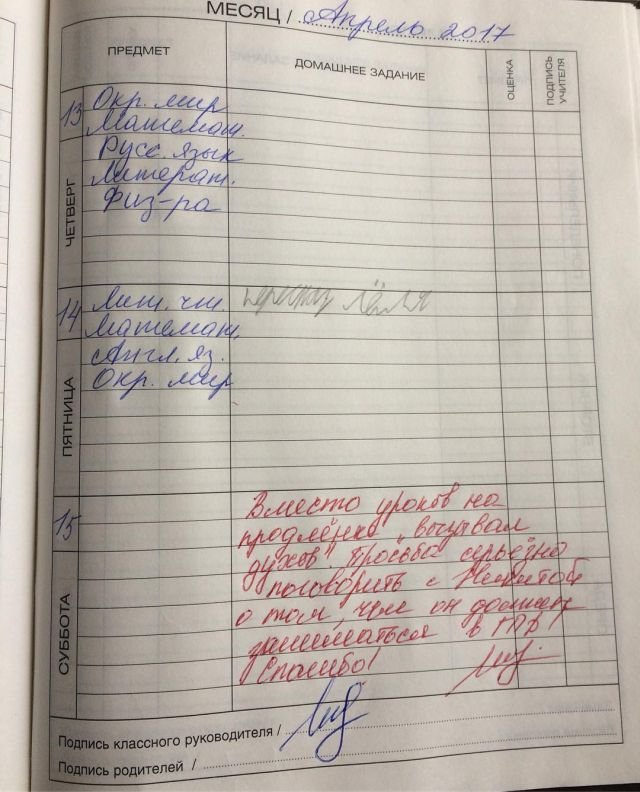 МЕСЯЦ / Апрель 2017
ПРЕДМЕТ ДОМАШНЕЕ ЗАДАНИЕ ОЦЕНКА ПОДПИСЬ УЧИТЕЛЯ
13 ЧЕТВЕРГ
Окр. мир
Математ.
Русс. язык
Литерат.
Физ-ра
14 ПЯТНИЦА
Лит. чт. пересказ Лёля
Математ.
Англ. яз.
Окр. мир
15 СУББОТА
Вместо уроков на
продлёнке "вызывал
духов". Просьба серьёзно
поговорить с Никитой
о том, чем он должен
заниматься в ГПД!
Спасибо!
Подпись классного руководителя /
Подпись родителей /